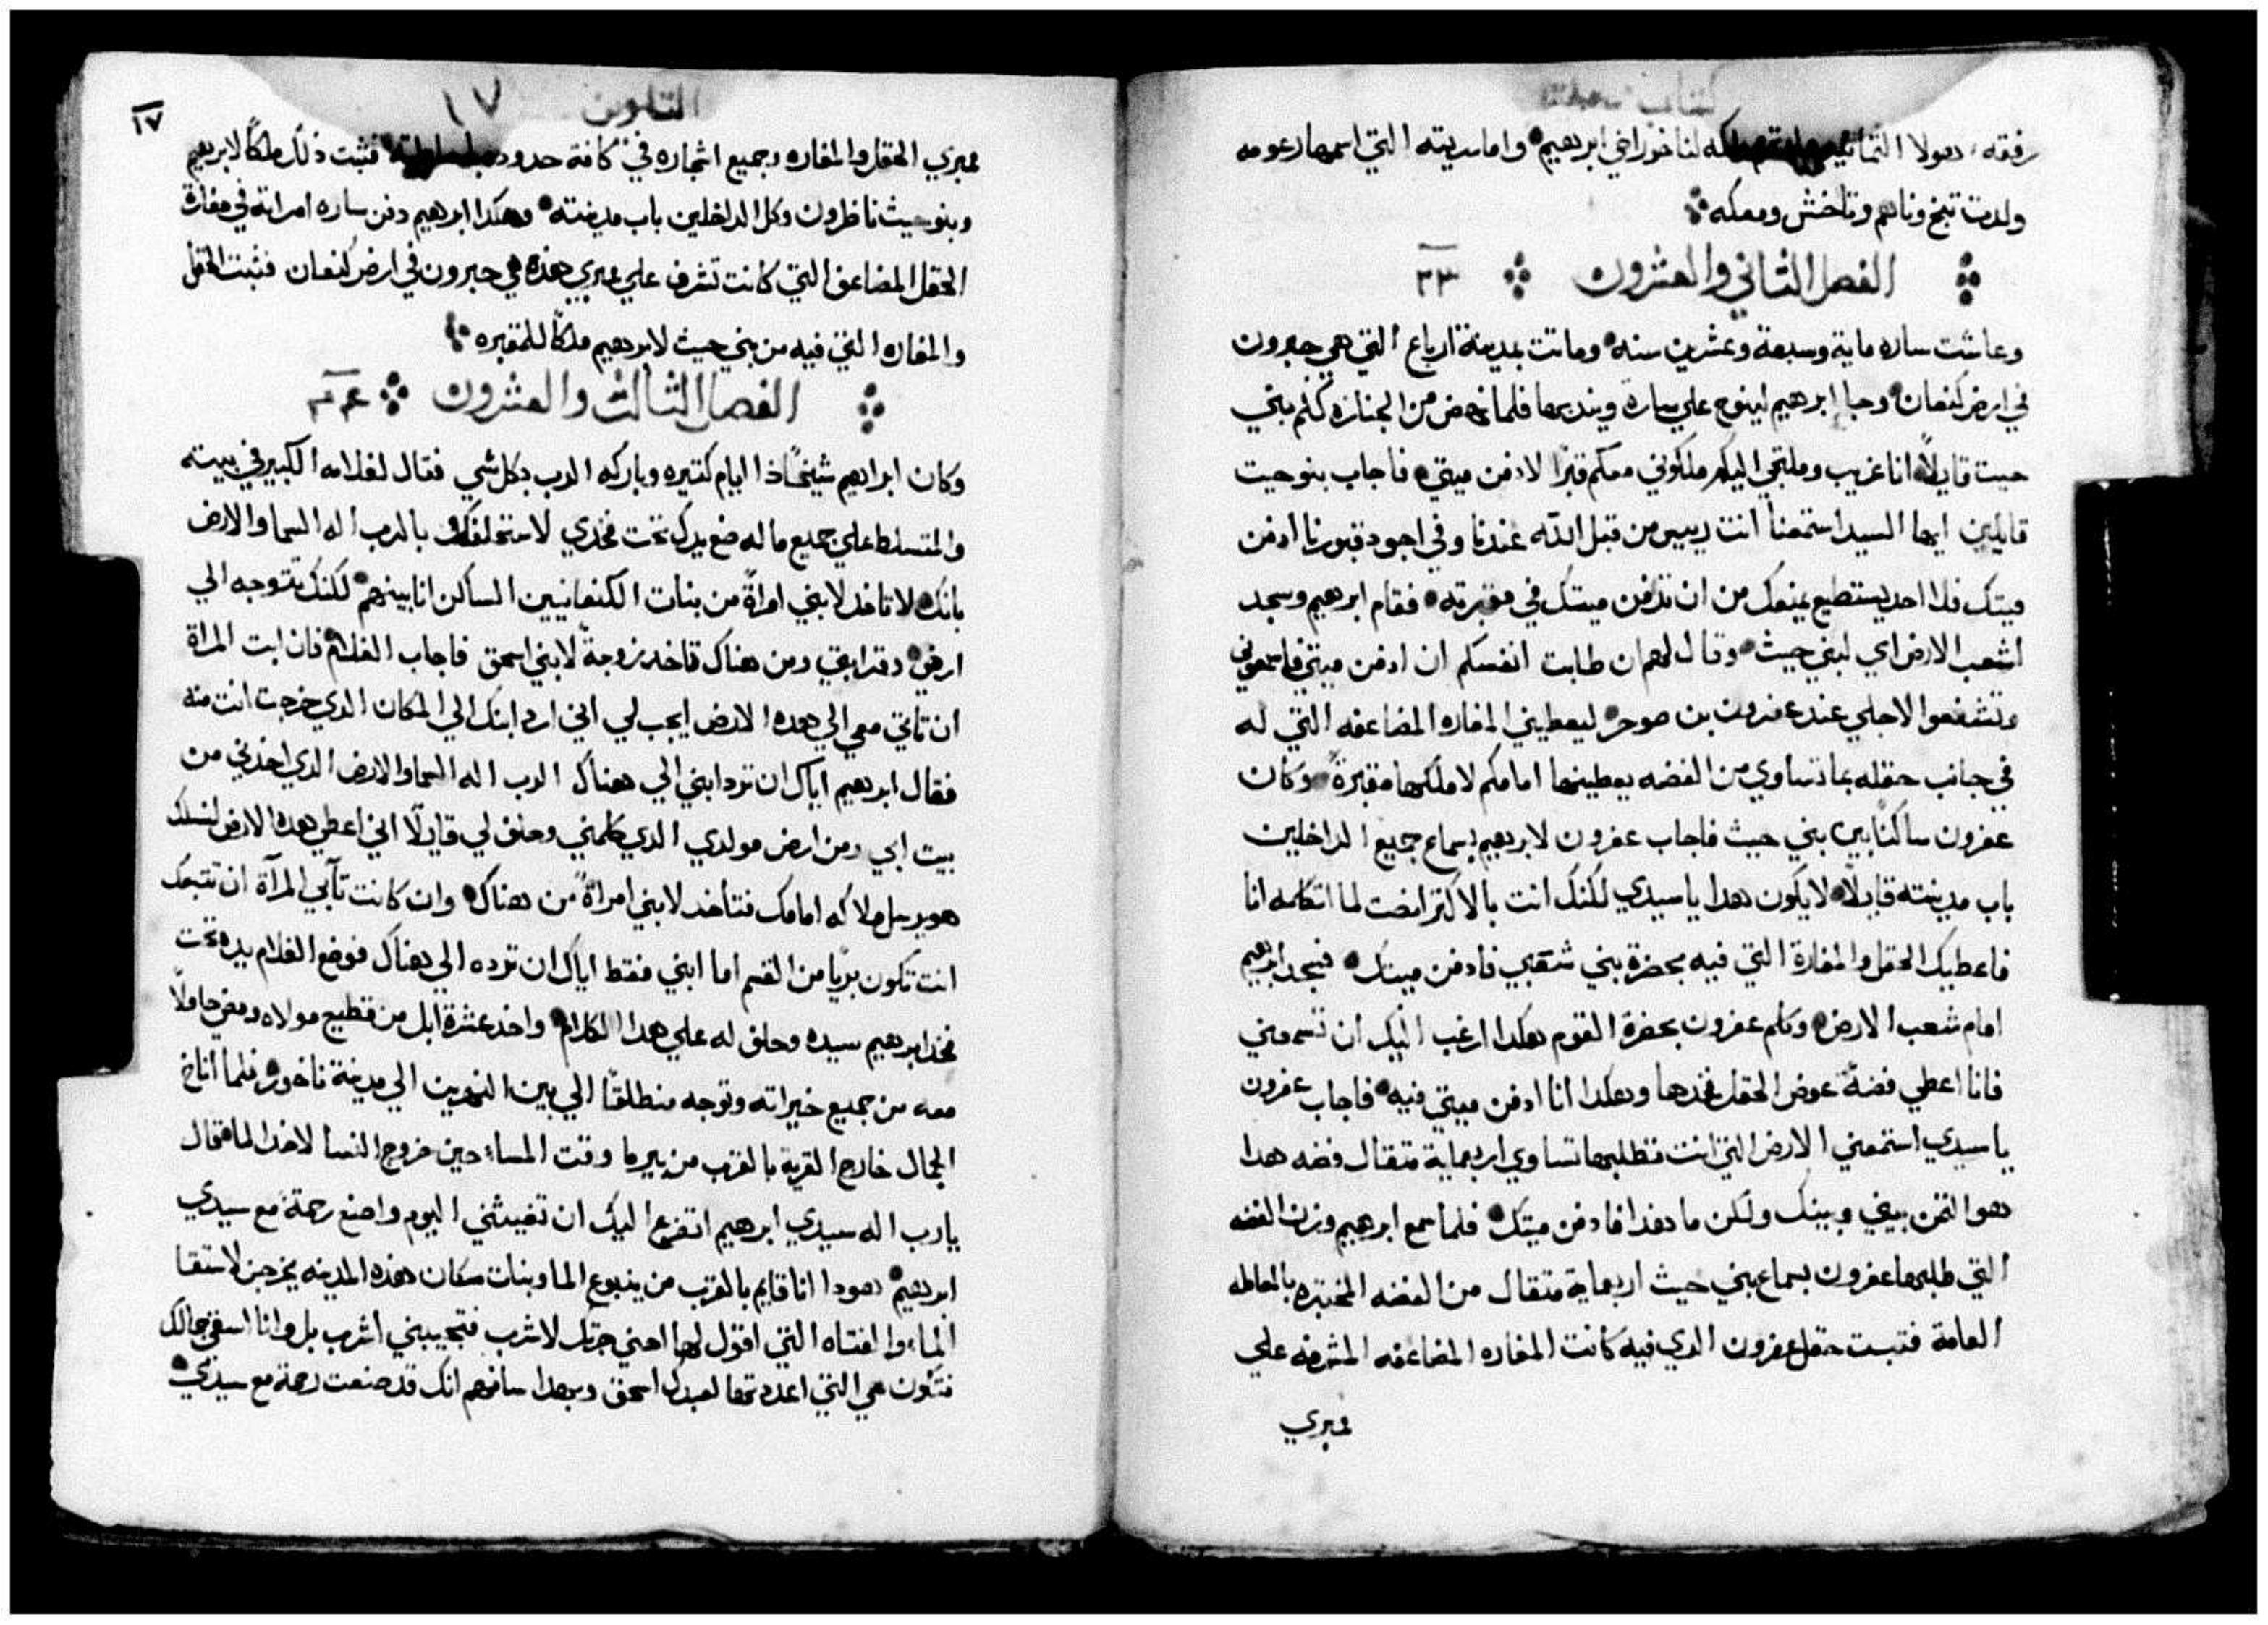 كتاب
رفقه، هولا الثمانية ولدتهم ملكه لناخور اخي ابرهيم واما سريته التي اسمها رعومه
ولدت تبخ وناهم وتاخش ومعكه
الفصل الثاني والعشرون ٢٣
وعاشت ساره ماية وسبعة وعشرين سنه وماتت بمدينة ارباع التي هي حبرون
في ارض كنعان وجا ابرهيم لينوح علي ساره ويندبها فلما نهض من الجنازه كلم بني
حيت قايلاً انا غريب وملتجي اليكم ملكوني معكم قبرًا لادفن ميتي فاجاب بنو حيت
قايلين ايها السيد استمعنا انت رييس من قبل الله عندنا وفي اجود قبورنا ادفن
ميتك فلا احد يستطيع يمنعك من ان تدفن ميتك في مقبرته فقام ابرهيم وسجد
لشعب الارض اي لبني حيث وقال لهم ان طابت انفسكم ان ادفن ميتي فاسمعوني
وتشفعوا لاجلي عند عفرون بن صوحر ليعطيني المغاره المضاعفه التي له
في جانب حقله بما تساوي من الفضه يعطينها امامكم لاملكها مقبرةً وكان
عفرون ساكنًا بين بني حيث فاجاب عفرون لابرهيم بسماع جميع الداخلين
باب مدينته قايلاً لا يكون هدا يا سيدي لكنك انت بالاكتر انصت لما اتكلمه انا
فاعطيك الحقل والمغارة التي فيه بحضرة بني شعبي فادفن ميتك فسجد ابرهيم
امام شعب الارض وكلم عفرون بحضرة القوم هكدا ارغب اليك ان تسمعني
فانا اعطي فضةً عوض الحقل فخدها وهكدا انا ادفن ميتي فيه فاجاب عفرون
يا سيدي استمعني الارض التي انت تطلبها تساوي اربعماية متقال فضه هدا
هو التمن بيني وبينك ولكن ما هدا فادفن ميتك فلما سمع ابرهيم وزن الفضه
التي طلبها عفرون بسماع بني حيث اربعماية متقال من الفضه المختبره بالمعامله
العامة فتبت حقل عفرون الدي فيه كانت المغاره المضاعفه المشرفه علي
ممبري
التكوين ١٧
١٧
ممبري الحقل والمغاره وجميع اشجاره في كافة حدوده فثبت ذلك ملكًا لابرهيم
وبنو حيث ناظرون وكل الداخلين باب مدينته وهكدا ابرهيم دفن ساره امراته في مغارة
الحقل المضاعف التي كانت تشرف علي ممبري هذه هي حبرون في ارض كنعان فثبت الحقل
والمغاره التي فيه من بني حيث لابرهيم ملكًا للمقبره
الفصل الثالث والعشرون ٢٤
وكان ابراهيم شيخًا ذا ايام كتيره وباركه الرب بكل شي فقال لغلامه الكبير في بيته
والمتسلط علي جميع ماله ضع يدك تحت فخدي لاستحلفك بالرب اله السما والارض
بانك لا تاخد لابني امراةً من بنات الكنعانيين الساكن انا بينهم لكنك تتوجه الي
ارضي وقرابتي ومن هناك تاخد زوجةً لابني اسحق فاجاب الغلام فان ابت المراة
ان تاتي معي الي هده الارض ايجب لي اني ارد ابنك الي المكان الدي خرجت انت منه
فقال ابرهيم اياك ان ترد ابني الي هناك الرب اله السما والارض الدي اخدني من
بيت ابي ومن ارض مولدي الدي كلمني وحلف لي قايلًا اني اعطي هده الارض لنسلك
هو يرسل ملاكه امامك فتاخد لابني امراةً من هناك وان كانت تآبي المرآة ان تتبعك
انت تكون بريًا من القسم اما ابني فقط اياك ان ترده الي هناك فوضع الغلام يده تحت
فخد ابرهيم سيده وحلف له علي هدا الكلام واخد عشرة ابل من قطيع مولاه ومضي حاملًا
معه من جميع خيراته وتوجه منطلقًا الي بين النهرين الي مدينة ناخور فلما اناخ
الجمال خارج القرية بالقرب من بير ما وقت المساء حين خروج النسا لاخد الما فقال
يا رب اله سيدي ابرهيم اتضرع اليك ان تغيثني اليوم واصنع رحمة مع سيدي
ابرهيم هودا انا قايم بالقرب من ينبوع الما وبنات سكان هذه المدينه يخرجن لاستقا
الماء والفتاه التي اقول لها احني جرتك لاشرب فتجيبني اشرب بل وانا اسقي جمالك
فتكون هي التي اعددتها لعبدك اسحق وبهدا سافهم انك قد صنعت رحمة مع سيدي